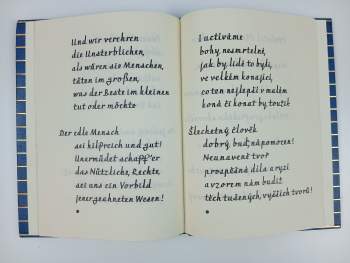 Und wir verehren
die Unsterblichen,
als wären sie Menschen,
täten im großen,
was der Beste im kleinen
tut oder möchte
Der edle Mensch
sei hilfreich und gut!
Unermüdet schaff' er
das Nützliche, Rechte,
sei uns ein Vorbild
jener geahneten Wesen!
I uctíváme
bohy, nesmrtelní,
jak by lidé to byli,
ve velkém konající,
co ten nejlepší v malém
koná či konat by toužil
Šlechetný člověk
dobrý, buď, nápomocen!
Neunaveně tvoř
prospěšná díla a ryzí
a vzorem nám budiž
těch tušených, vyšších tvorů!